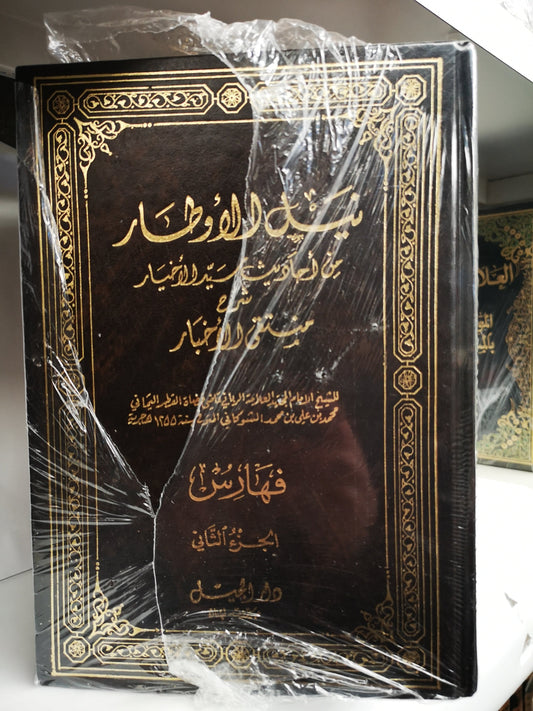 نيل الأوطار
من أحاديث سيد الأخيار
شرح
منتقى الأخبار
للشيخ الإمام المجتهد العلامة الرباني قاضي قضاة القطر اليماني
محمد بن علي بن محمد الشوكاني المتوفى سنة ١٢٥٥ هجرية
فهارس
الجزء الثاني
دار الجيل